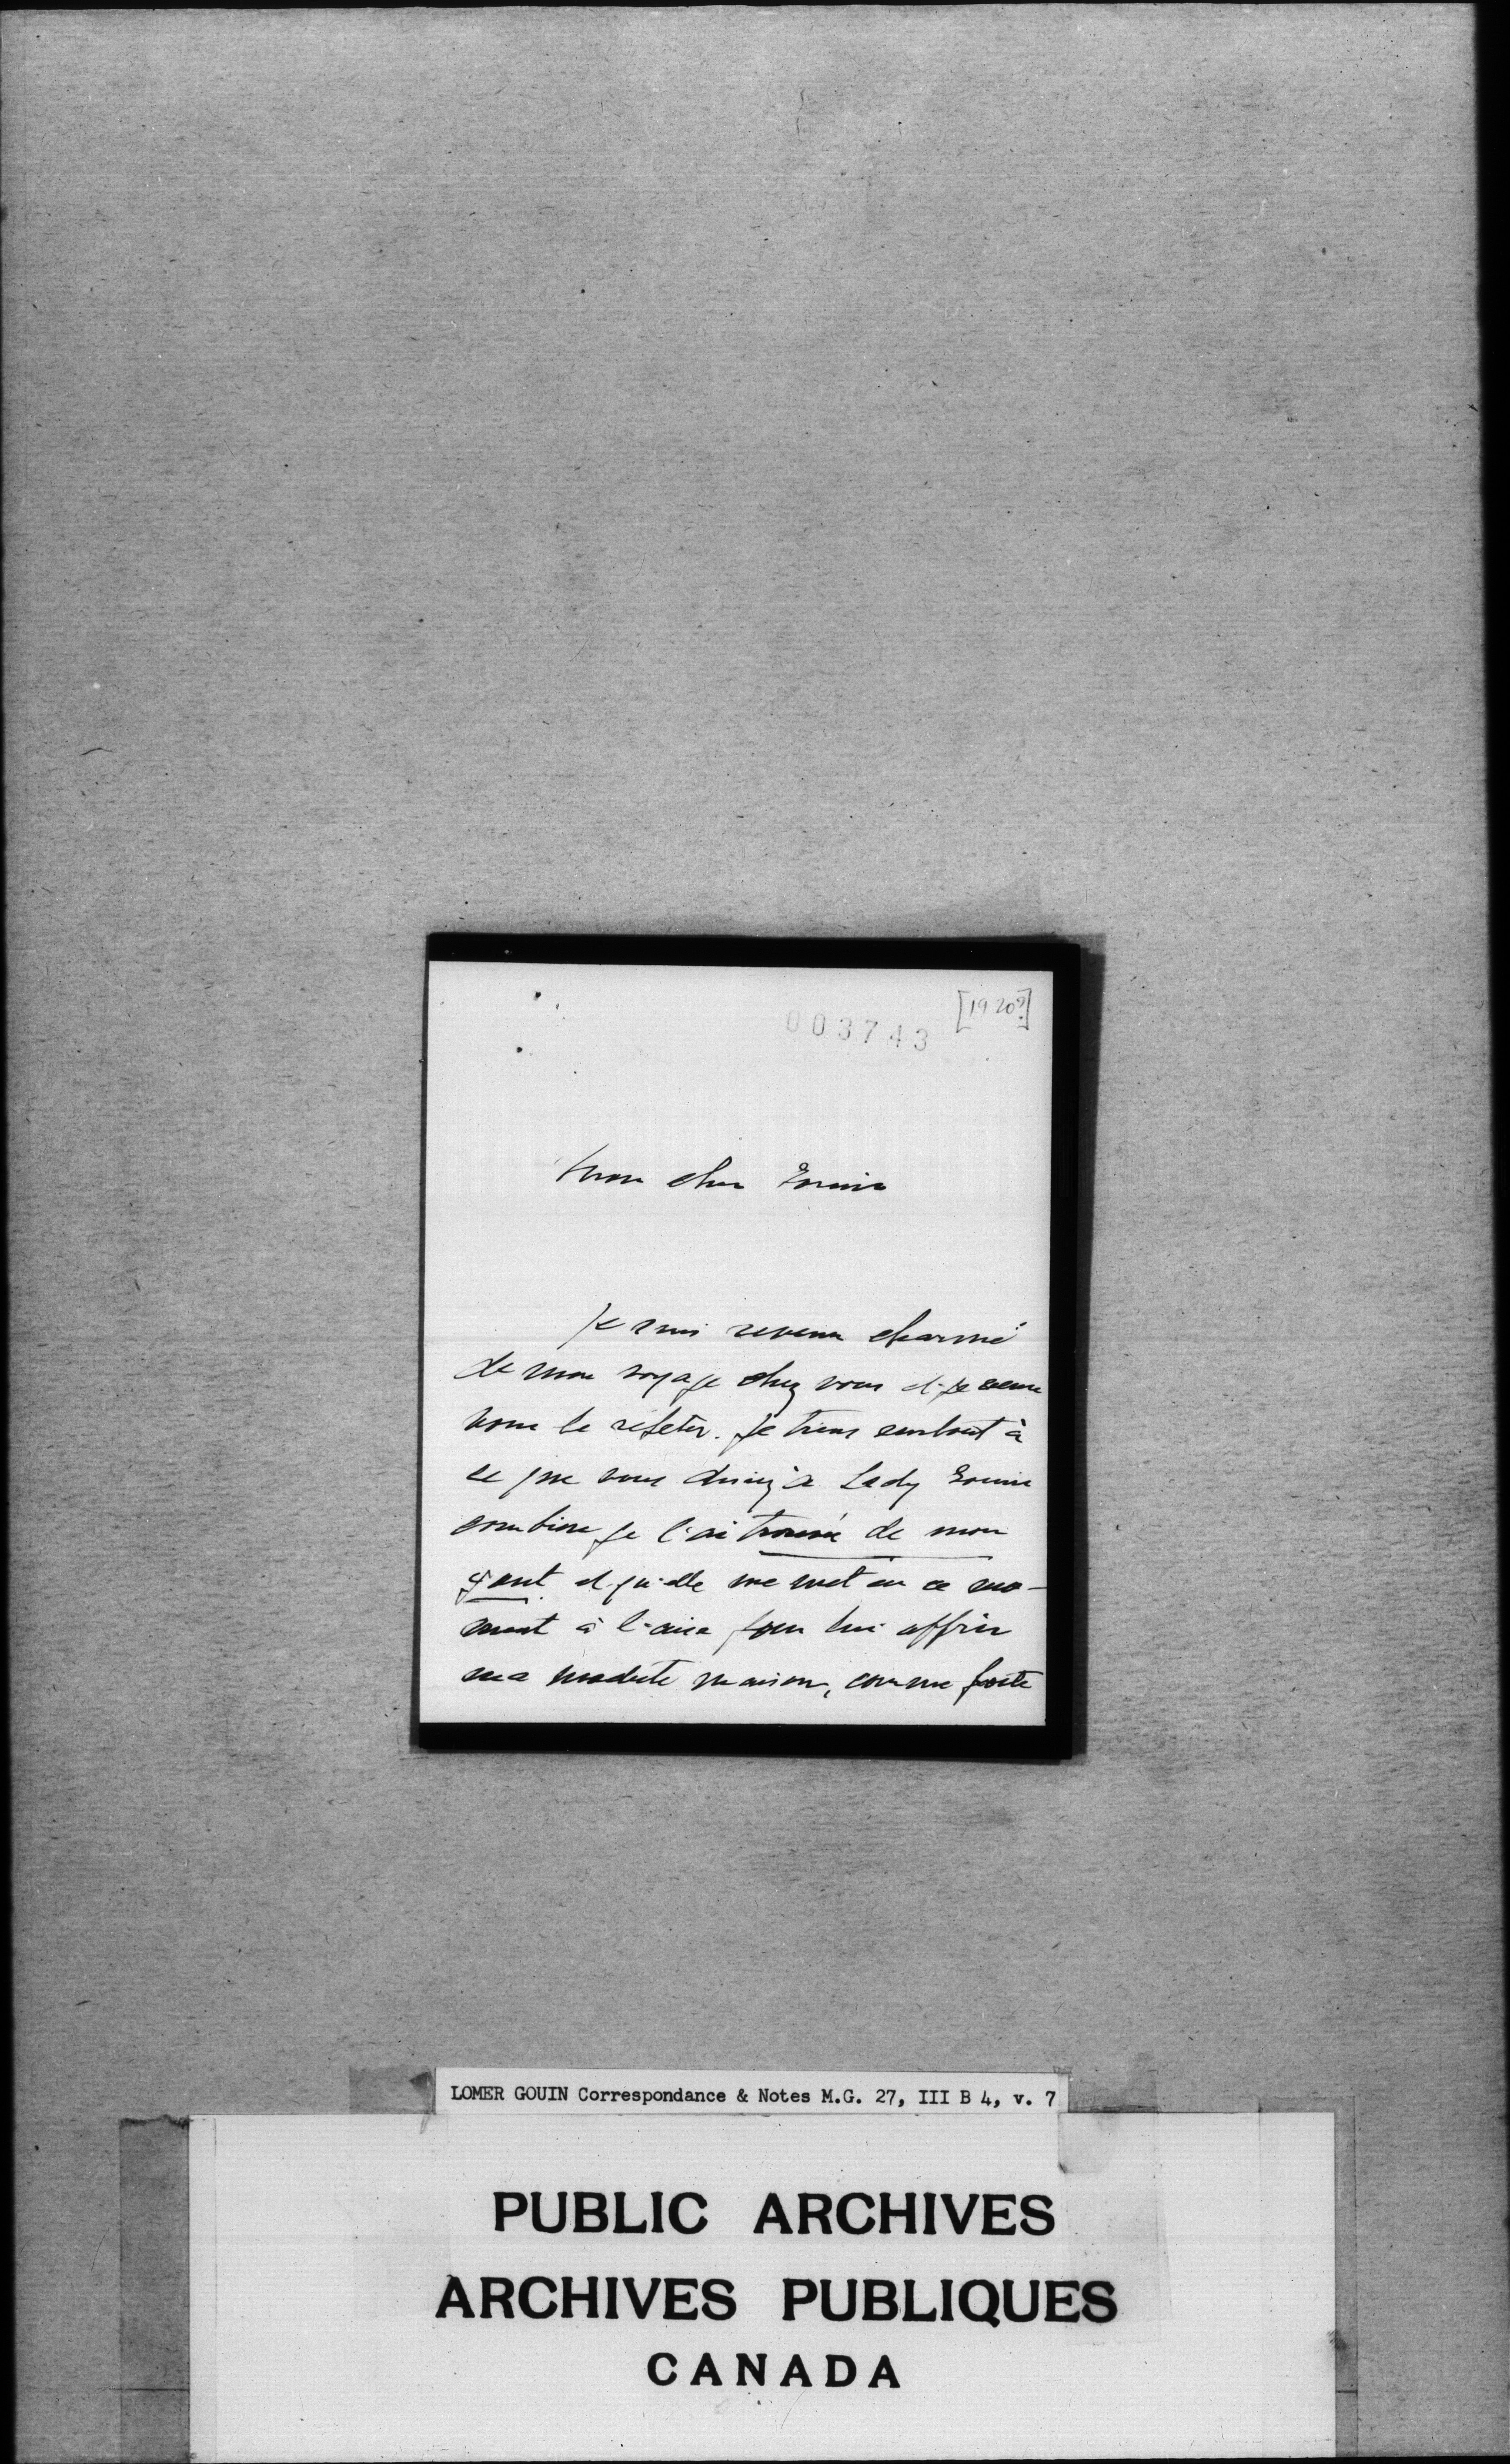 [1920?]
003743
Mon cher Gouin
Je suis revenu charmé
de mon voyage chez vous et je veux
vous le répéter. Je tiens surtout à
ce que vous disiez à Lady Gouin
combien je l'ai trouvée de mon
goût et qu'elle me met en ce mo-
ment à l'aise pour lui offrir
ma modeste maison, comme
LOMER GOUIN Correspondance & Notes M.G. 27, III B 4, v. 7
PUBLIC ARCHIVES
ARCHIVES PUBLIQUES
CANADA